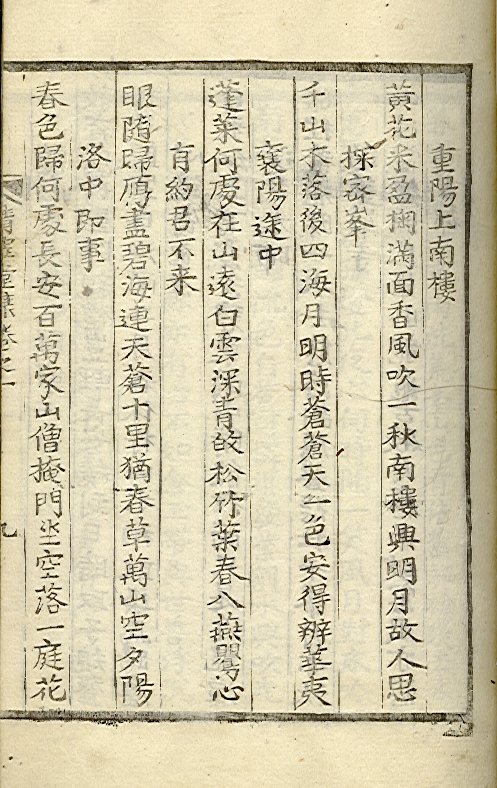 重陽上南樓
黃花未盈掬滿面香風吹一秋南樓興明月故人思
探密峯
千山木落後四海月明時蒼蒼天一色安得辨華夷
襄陽途中
蓬萊何處在山遠白雲深青故松竹葉春入燕鸎心
有約君不來
眼隨歸鴈盡碧海連天蒼十里猶春草萬山空夕陽
洛中即事
春色歸何處長安百萬家山僧掩門坐空落一庭花
清虛堂集卷之一
九